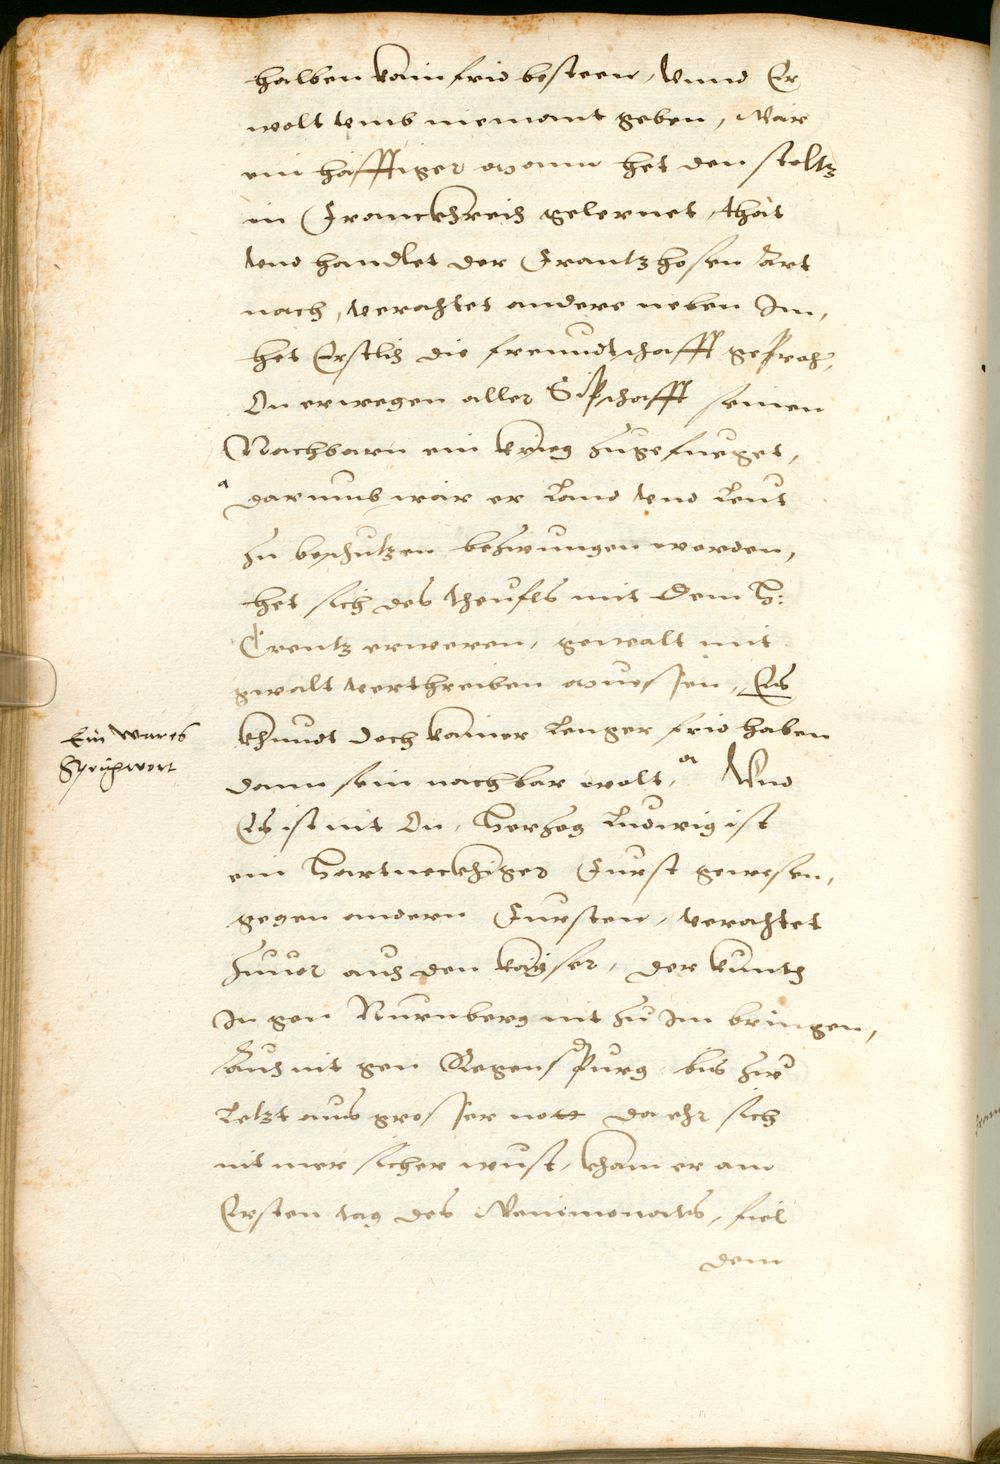 halben kain frid besteen, Vnnd Er
wolt vmb niemant geben, Wär
ein häfftiger mann het den stoltz
in Franckhreich gelernet, thät
vnd handlet der Frantzhosen Art
nach, verachtet andere neben Im,
het Erstlich die freundtschafft geproch,
On erwegen aller Sipschafft seinen
Nachbarn ein krieg zugefueget,
darumb wär er Land vnd Leut
zu beschutzen bezwungen worden,
het sich des theufls mit dem H:
Creutz erweren, gewalt mit
gwalt verthreiben muessen, Es
khundt doch kainer lenger frid haben
dann sein nachbar wolt, Vnd
Es ist nit On, Hertzog Ludwig ist
ein Hartneckhiger Furst gewesen,
gegen andern Fursten, verachtet
zuuor auch den kayser, der kunth
In gen Nurnberg nit zu Im bringen,
Auch nit gen Regenspurg bis zur
Letzt aus grosser nott da ehr sich
nit mer sicher wust, kham er am
Ersten tag des Weinmonats, fiel
dem
Ein wares
Sprichwort